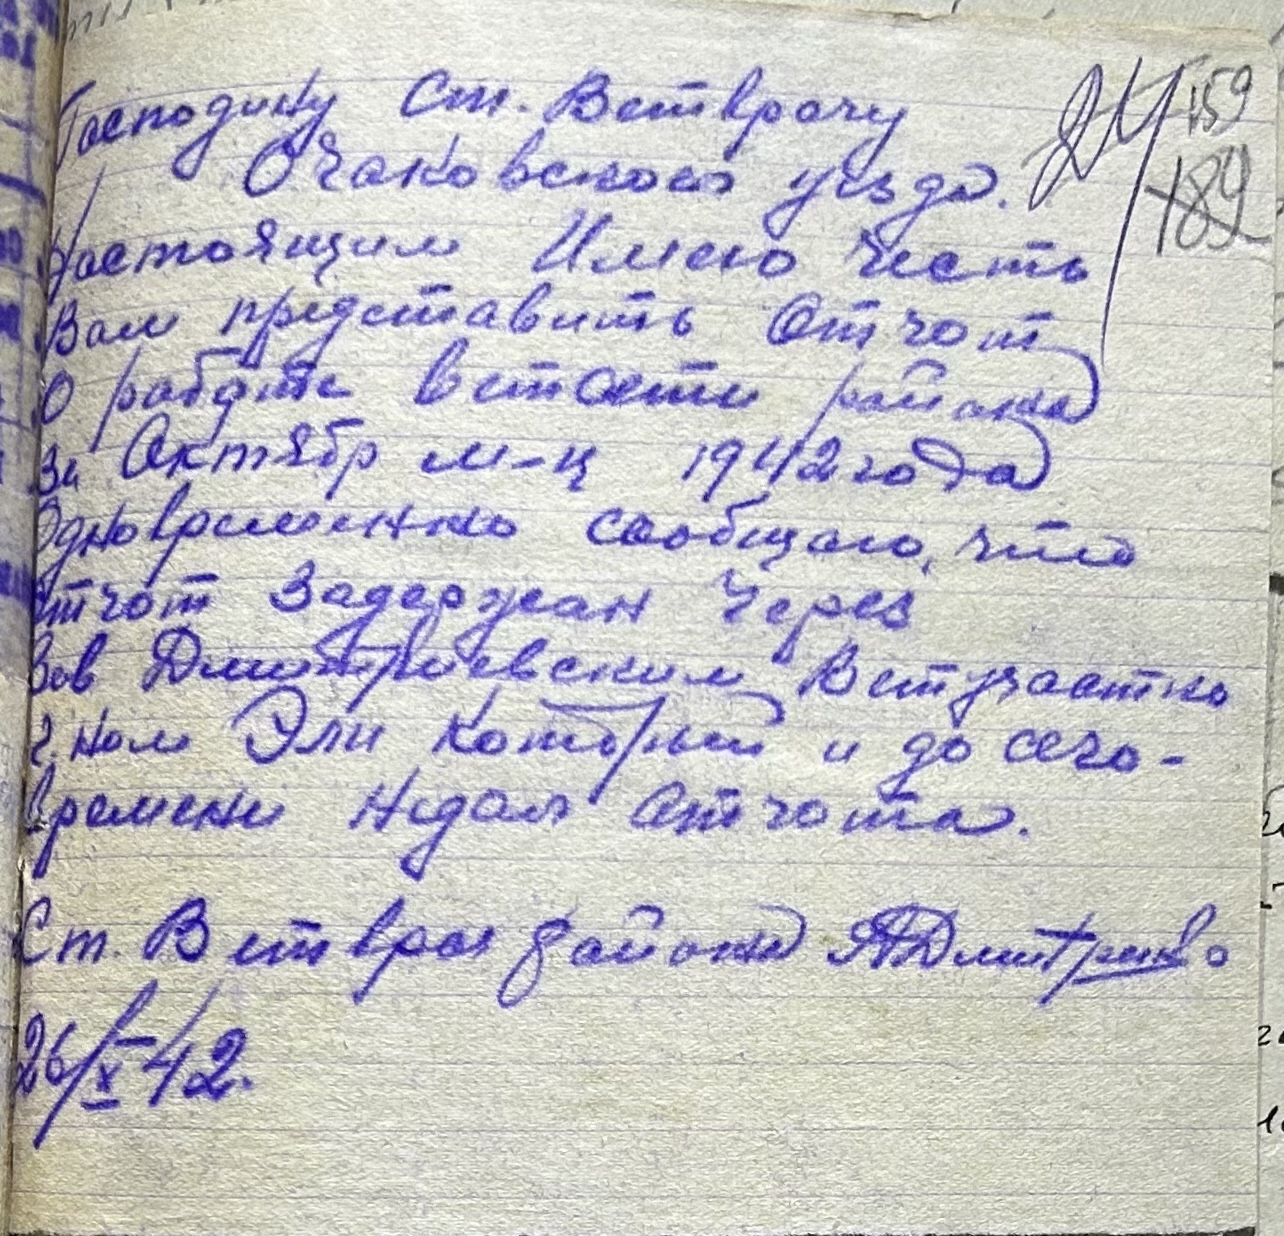 Господину Ст. Ветврачу
Очаковского уезда.
159
189
Настоящим Имею Честь
Вам представить Отчот
О работе ветсети района
За Октябр м-ц 1942 года
Одновременно сообщаю, что
Отчот Задержан Через
Зав Дмитриевским Ветучастко
г. ном Эли Который и до сего-
времени Недал Отчота.
Ст. Ветврач района Дмитренко
26/X 42.